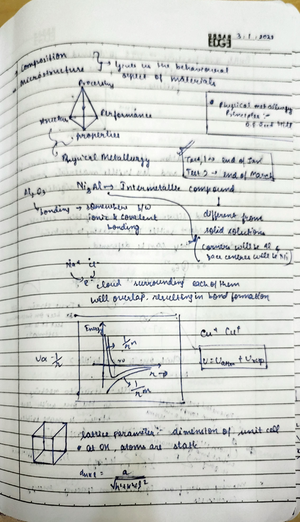 3.1.2021
Composition
Microstructure
gives us the behavioural
aspect of materials
Processing
Performance
Structure
Properties
Physical Metallurgy
Physical metallurgy
Principles :-
Test 1 → end of Jan
Test 2 → end of March
Al₂O₃ Ni₃Al → Intermetallic compound
bonding → somewhere b/w
ionic & covalent
bonding
different from
solid solutions
corners will be Al &
face centres will be Ni
Na⁺ Cl⁻
e⁻ cloud surrounding each of them
will overlap resulting in bond formation
Energy
Cu⁺ Cu⁺
r →
lattice parameter :- dimension of unit cell
at 0K, atoms are static